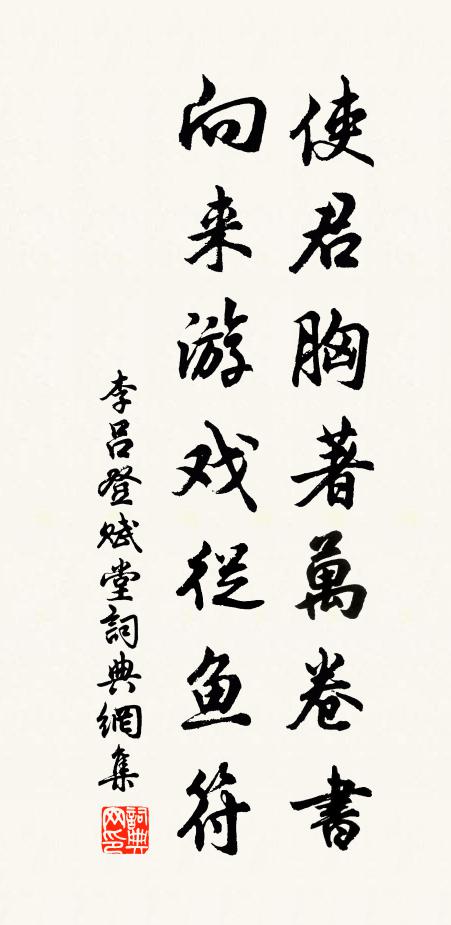 使君胸著萬卷書
向来游戏從鱼符
李吕登赋堂詞典網集
詞典
网印